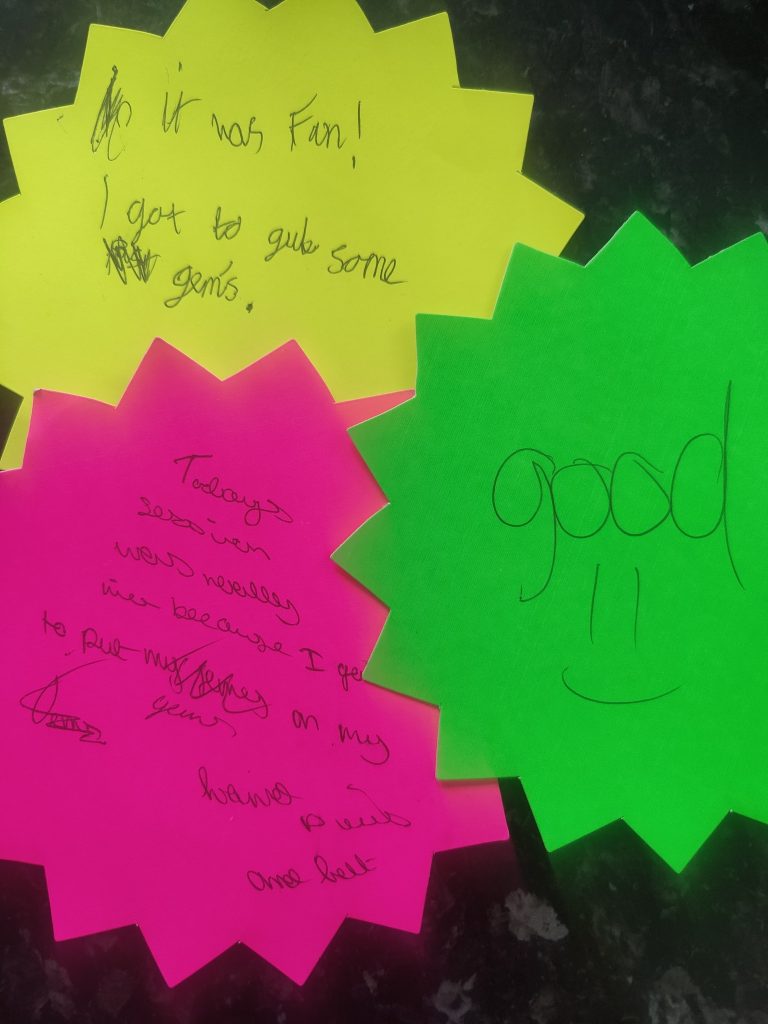 it was Fan!
I got to gub some
gems.
good
Todays
session
was really
because I
to put my on my
gems
hand
and belt